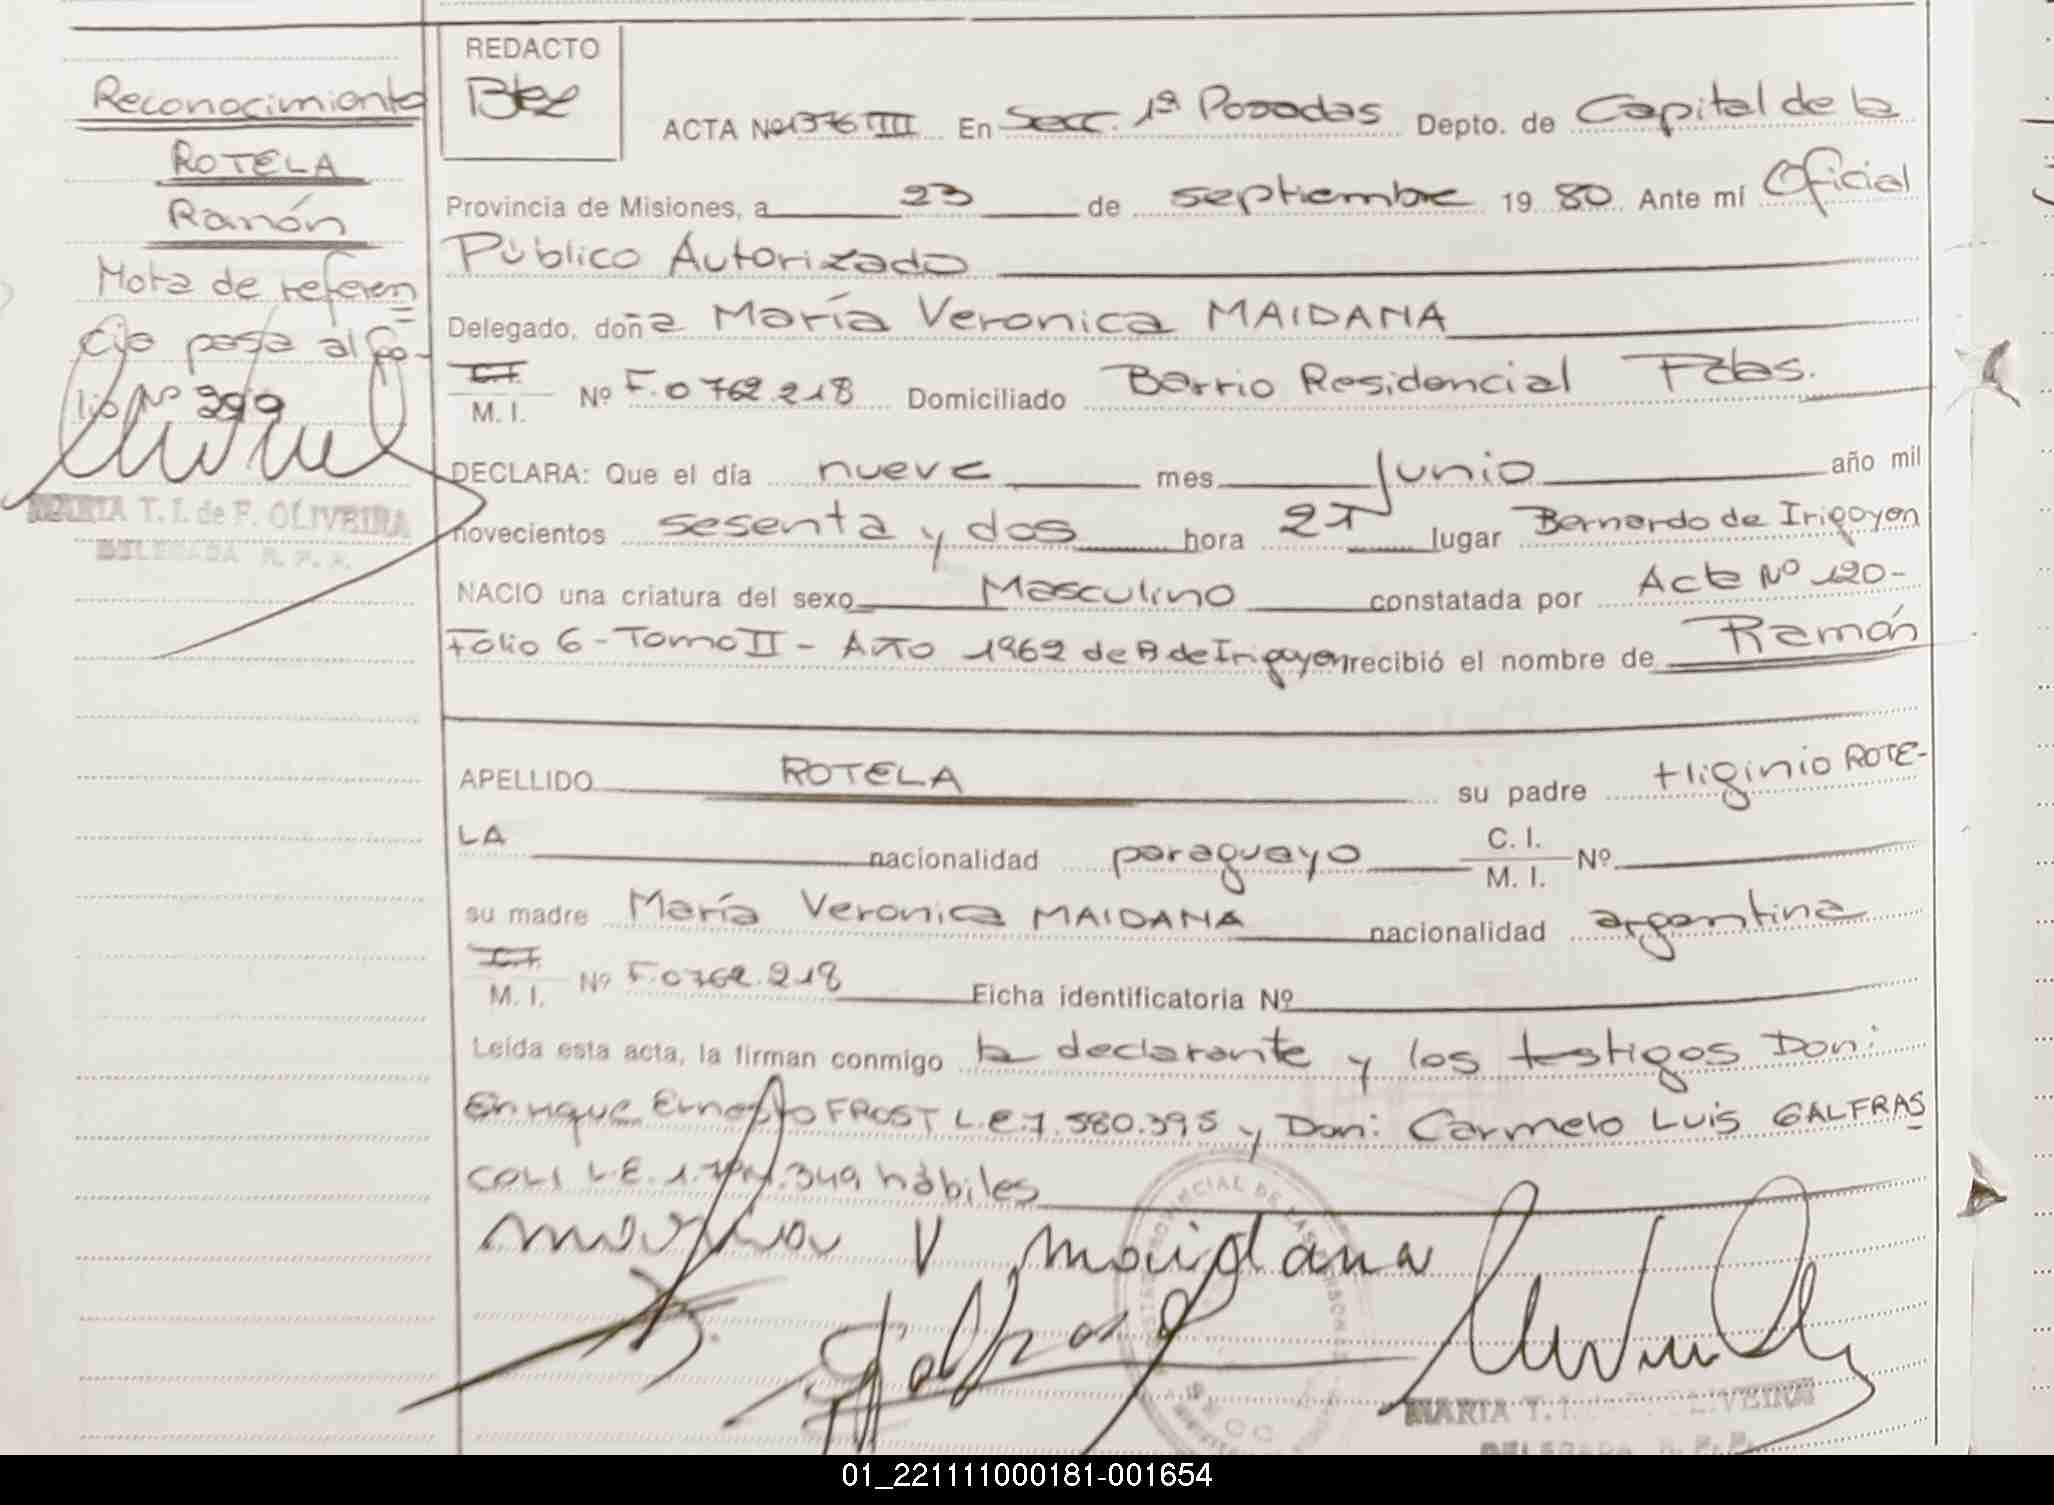 Reconocimiento
ROTELA
Ramón
Nota de referen
cia pasa al fo-
lio Nº 399
MARIA T. I. de F. OLIVEIRA
DELEGADA R. P. P.
REDACTO
ACTA Nº 1376 TIII En Secc. 1ª Posadas Depto. de Capital de la
Provincia de Misiones, a 23 de septiembre 19 80 Ante mí Oficial
Público Autorizado
Delegado, doña María Veronica MAIDANA
C.I.
M. I. Nº F.0762.218 Domiciliado Barrio Residencial Pdas.
DECLARA: Que el día nueve mes Junio año mil
novecientos sesenta y dos hora 21 lugar Bernardo de Irigoyen
NACIO una criatura del sexo Masculino constatada por Acta Nº 120-
Folio 6 - Tomo II - Año 1962 de B de Irigoyen recibió el nombre de Ramón
APELLIDO ROTELA su padre Higinio ROTE-
LA nacionalidad paraguayo C. I.
M. I. Nº
su madre María Veronica MAIDANA nacionalidad argentina
C.I.
M. I. Nº F.0762.218 Ficha identificatoria Nº
Leída esta acta, la firman conmigo la declarante y los testigos Don:
Enrique Ernesto FROST L.E.7.580.395 y Don: Carmelo Luis GALFRAS
COLI L.E. 349 hábiles
maria V maidana
MARIA T. I. OLIVEIRA
DELEGADA R. P. P.
01_221111000181-001654